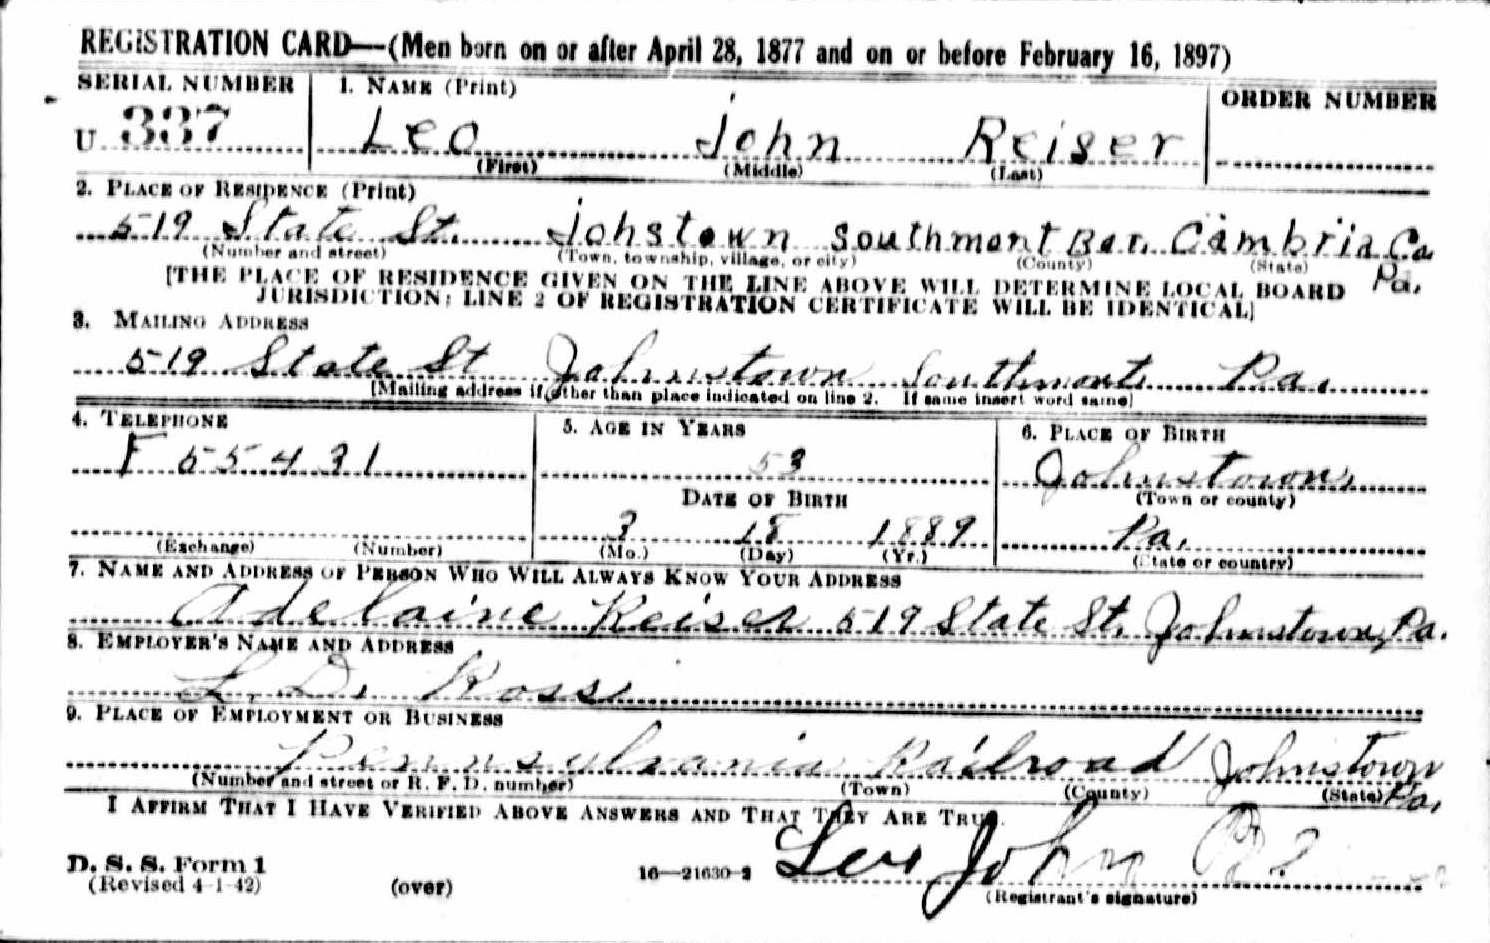 REGISTRATION CARD—(Men born on or after April 28, 1877 and on or before February 16, 1897)
SERIAL NUMBER 1. NAME (Print) ORDER NUMBER
U 337 Leo John Reiser
(First) (Middle) (Last)
2. PLACE OF RESIDENCE (Print)
519 State St. Johstown Southmont Bor. Cambria Co
(Number and street) (Town, township, village, or city) (County) (State)
Pa.
[THE PLACE OF RESIDENCE GIVEN ON THE LINE ABOVE WILL DETERMINE LOCAL BOARD
JURISDICTION; LINE 2 OF REGISTRATION CERTIFICATE WILL BE IDENTICAL]
3. MAILING ADDRESS
519 State St Johnstown Southmont Pa.
[Mailing address if other than place indicated on line 2. If same insert word same]
4. TELEPHONE 5. AGE IN YEARS 6. PLACE OF BIRTH
F 55431 53 Johnstown,
(Town or county)
DATE OF BIRTH
3 18 1889 Pa.
(Exchange) (Number) (Mo.) (Day) (Yr.) (State or country)
7. NAME AND ADDRESS OF PERSON WHO WILL ALWAYS KNOW YOUR ADDRESS
Adelaine Reiser 519 State St. Johnstown, Pa.
8. EMPLOYER'S NAME AND ADDRESS
L. D. Ross
9. PLACE OF EMPLOYMENT OR BUSINESS
Pennsylvania Railroad Johnstown
(Number and street or R. F. D. number) (Town) (County) (State) Pa.
I AFFIRM THAT I HAVE VERIFIED ABOVE ANSWERS AND THAT THEY ARE TRUE.
Leo John
D. S. S. Form 1
(Revised 4-1-42) (over) 16—21630-2 (Registrant's signature)